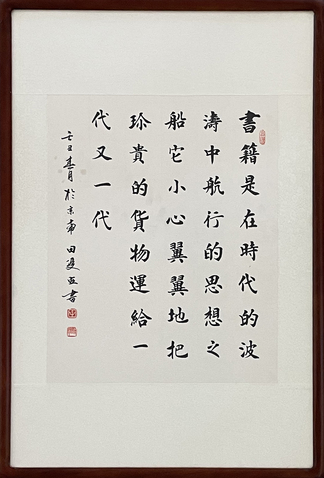 書籍是在時代的波
濤中航行的思想之
船它小心翼翼地把
珍貴的貨物運給一
代又一代
壬丑春月於京南田
書